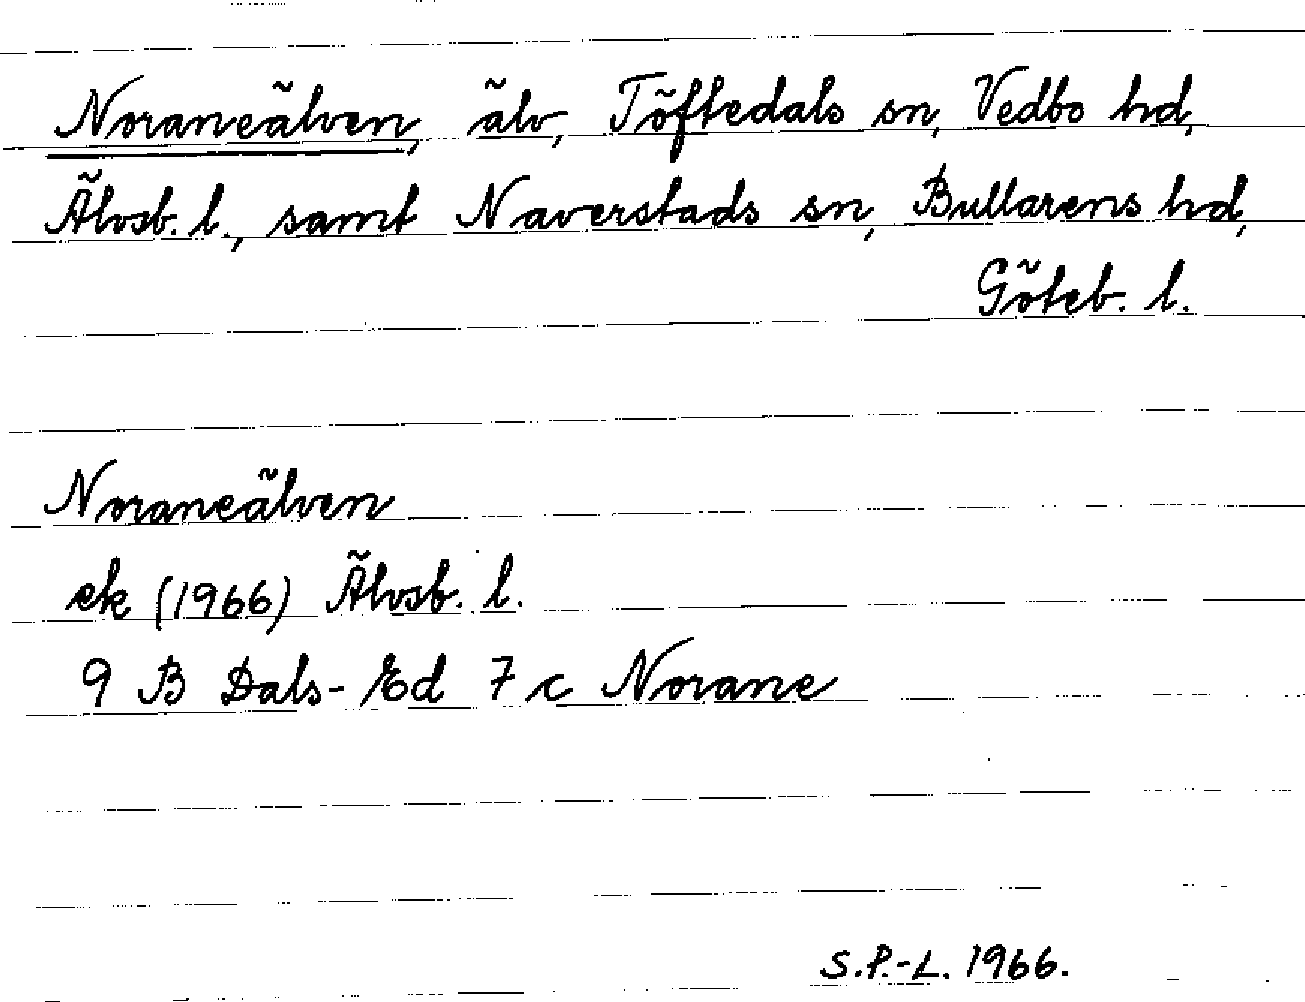 Noraneälven, älv, Töftedals sn, Vedbo hd,
Älvsb. l., samt Naverstads sn, Bullarens hd,
Göteb. l.
Noraneälven
ek (1966) Älvsb. l.
9 B Dals-Ed 7 c Norane
S.P.-L. 1966.